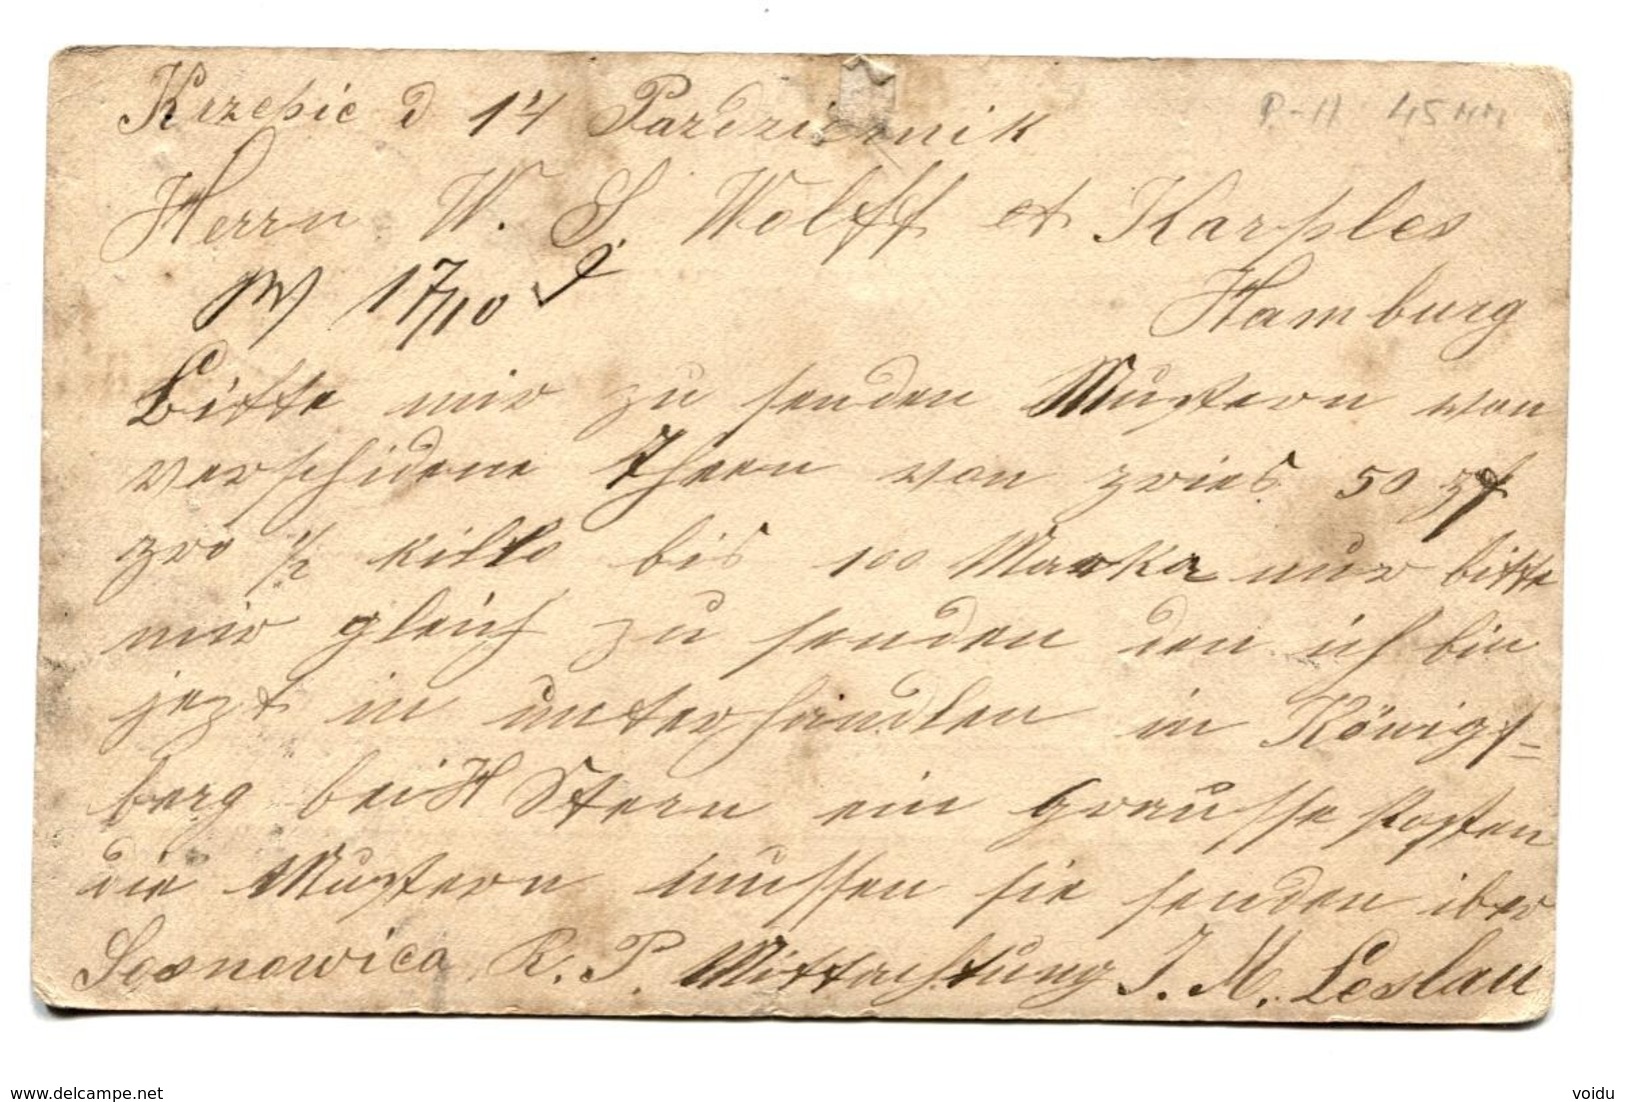 Krzepic d 14 Pazdziernik
P-11 45 MM
Herrn W. S. Wolff et Karples
Hamburg
17/10
Bitte mir zu senden Mustern von
verschidene Theen von preis 50 pf
pro 1/2 killo bis 100 Marka nur bitte
mir gleich zu senden den ich bin
jezt in unterhandlen in Königs=
berg bei H Stern ein grausse Posten
die Mustern mussen sie senden iber
Sosnowica R. P. Mittachtung J. M. Leslau
www.delcampe.net
voidu